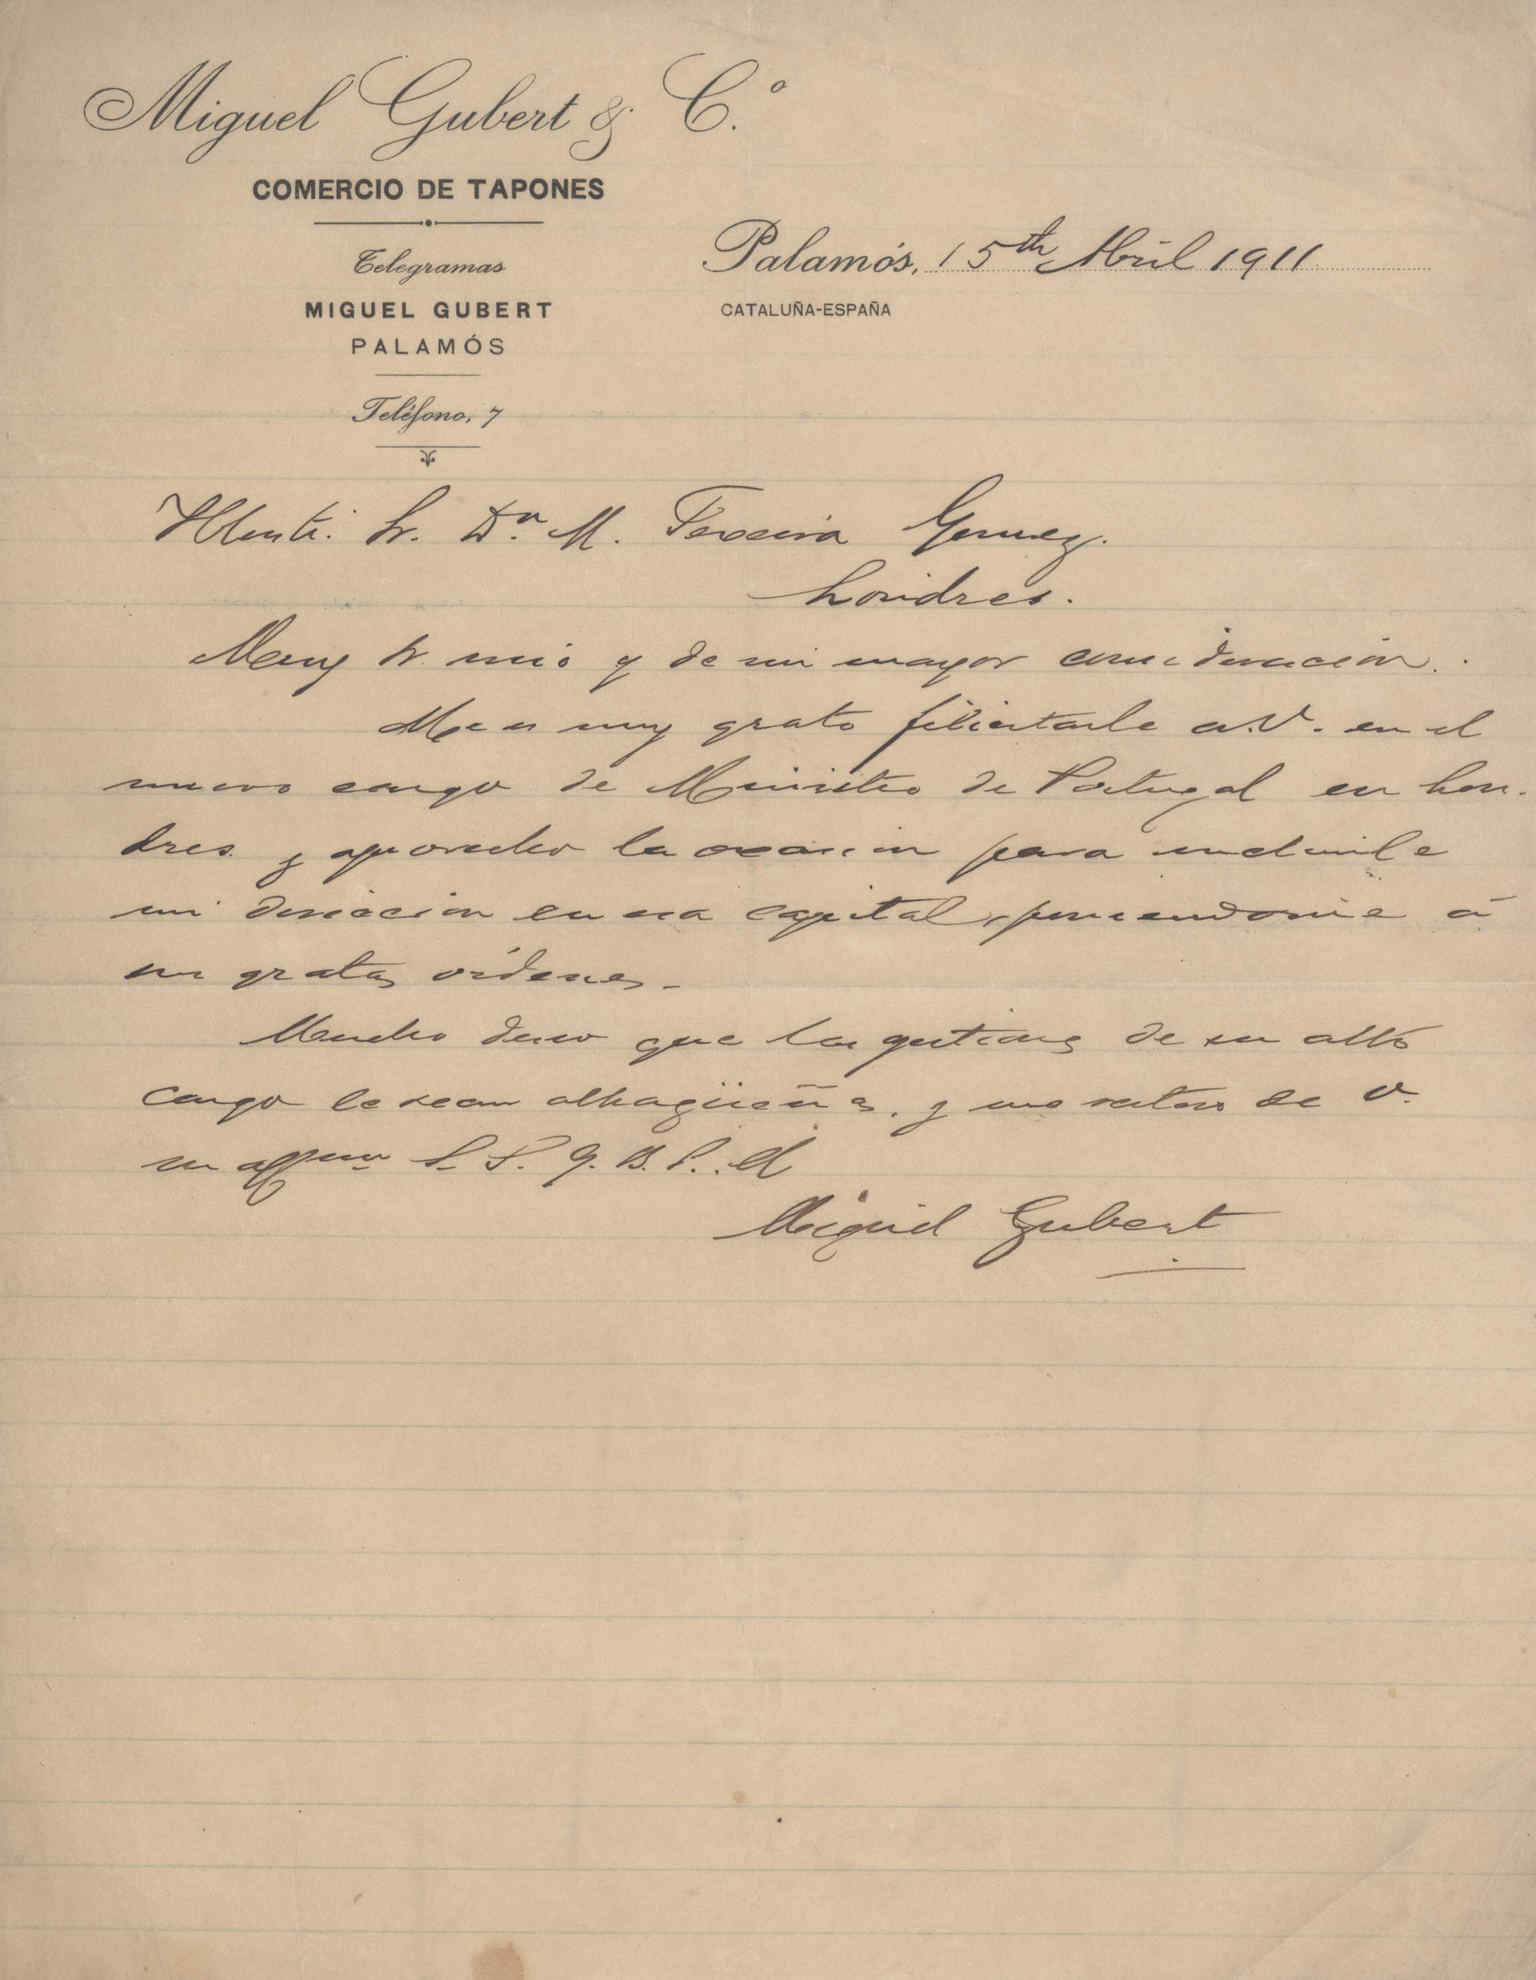 Miguel Gubert & C.º
COMERCIO DE TAPONES
Telegramas
MIGUEL GUBERT
PALAMÓS
Teléfono, 7
Palamós, 15th Abril 1911
CATALUÑA-ESPAÑA
Sr. Dn. M. Texeira Gomez.
Londres.
Muy Sr. mio y de mi mayor consideración.
Me es muy grato felicitarle a V. en el
nuevo cargo de Ministro de Portugal en Lon-
dres y aprovecho la ocasion para
mi en esa capital, poniendome á
sus gratas ordenes.
Mucho deseo que las gestions de su alto
cargo le sean alhagüeñas, y me reitero de V.
su affmo S. S. q. B. S. M
Miguel Gubert